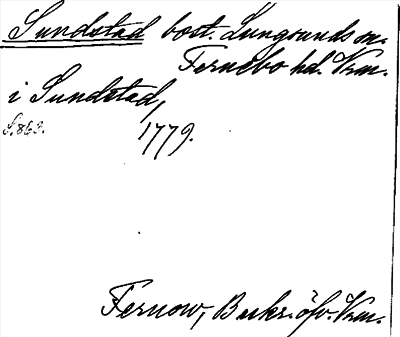 Sundstad bost. Lungsunds sn.
Fernebo hd. Vrm.
i Sundstad,
S. 863.
1779.
Fernow, Beskr. öfv. Vrm.